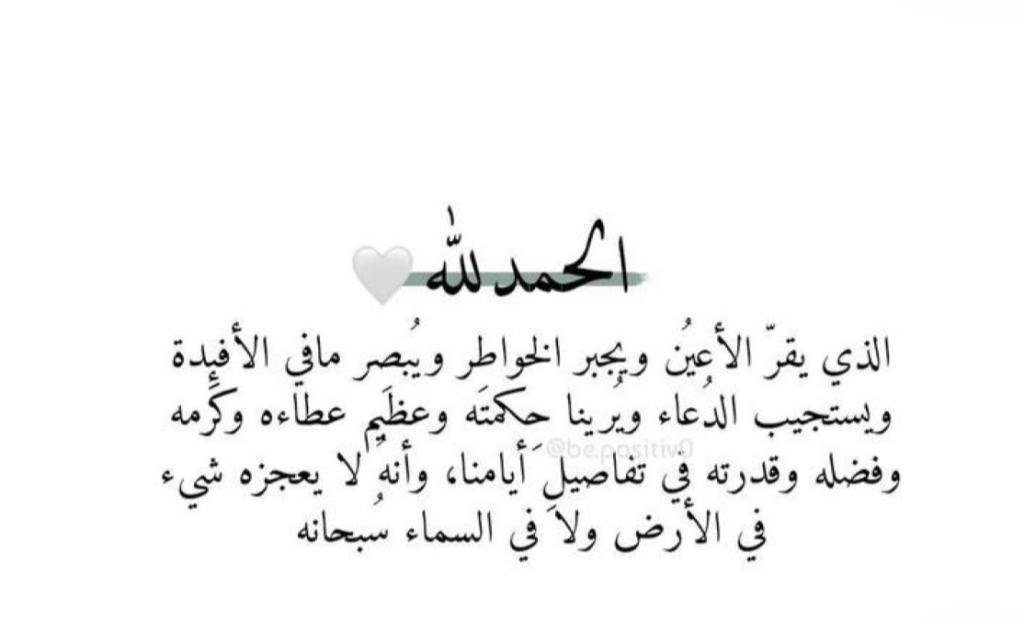 الحمدلله 🤍
الذي يقرّ الأعيُن ويجبر الخواطر ويُبصر مافي الأفئِدة
ويستجيب الدُعاء ويُرينا حكمتَه وعظَيم عطاءه وكَرمه
@be.positiv0
وفضله وقدرته في تفاصيلِ أيامنا، وأنهُ لا يعجزه شيء
في الأرض ولا في السماء سُبحانه